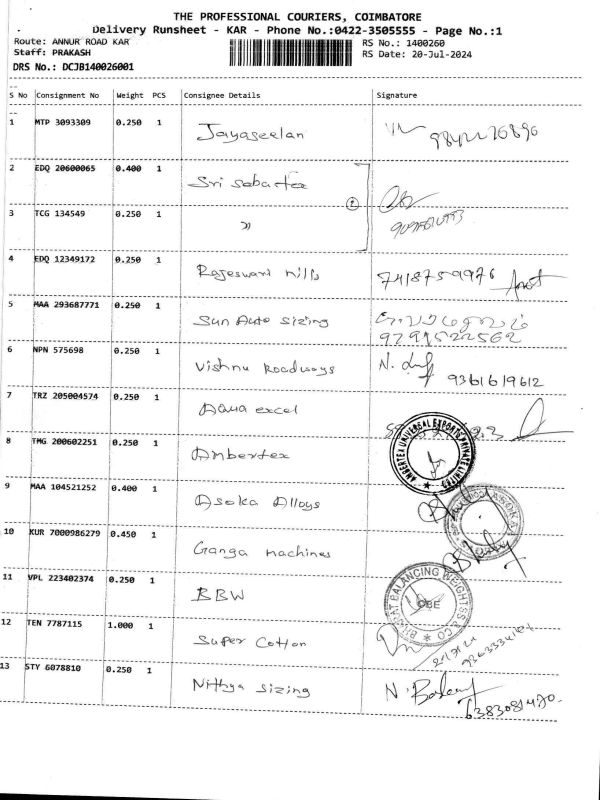 THE PROFESSIONAL COURIERS, COIMBATORE
Delivery Runsheet - KAR - Phone No.:0422-3505555 - Page No.:1
Route: ANNUR ROAD KAR RS No.: 1400260
Staff: PRAKASH RS Date: 20-Jul-2024
DRS No.: DCJB140026001
S No Consignment No Weight PCS Consignee Details Signature
1 MTP 3093309 0.250 1 Jayaseelan
2 EDQ 20600065 0.400 1 Sri Sabartex
3 TCG 134549 0.250 1 〃 2
4 EDQ 12349172 0.250 1 Rajeswari mills 7418759976
5 MAA 293687771 0.250 1 Sun Auto Sizing
9791522562
6 NPN 575698 0.250 1 Vishnu Roadways 9361619612
7 TRZ 205004574 0.250 1 Aqua excel
8 TMG 200602251 0.250 1 Ambertex AMBERTEX UNIVERSAL EXPORTS PRIVATE LIMITED
9 MAA 104521252 0.400 1 Asoka Alloys ASOKA
10 KUR 7000986279 0.450 1 Ganga machines
11 VPL 223402374 0.250 1 BBW BALANCING WEIGHTS & CO CBE
12 TEN 7787115 1.000 1 Super Cotton
13 STY 6078810 0.250 1 Nithya Sizing
6383081470